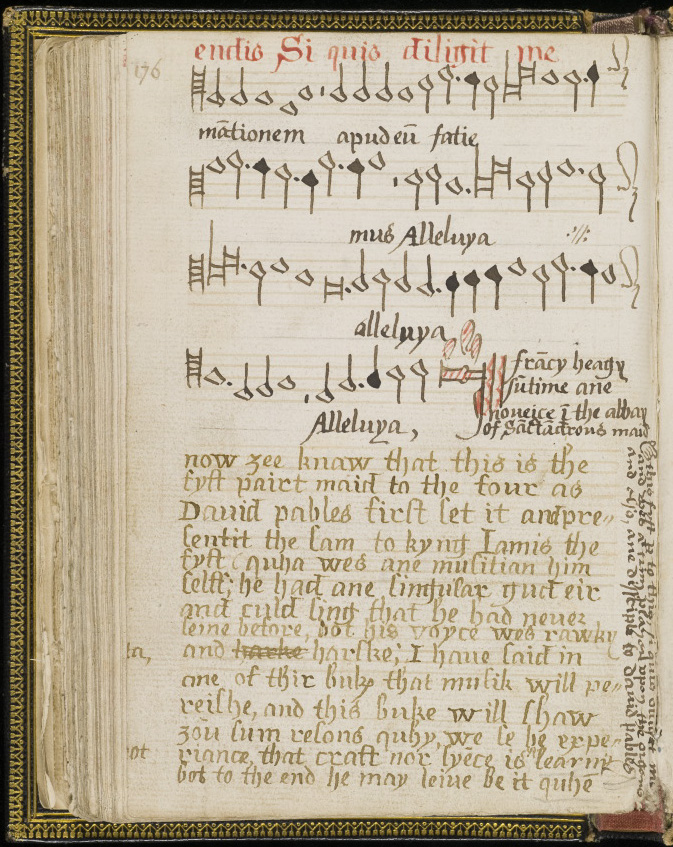 endis Si quis diligit me
176
mātionem apud eū fatie
mus Alleluya
alleluya
Alleluya,
frācy heagy
sūtime ane
noueice ī the abbay
of Sāctādrous
now zee knaw that this is the
fyft pairt maid to the four as
Dauid pables first set it and pre„
sentit the sam to kyng Iamis the
fyft quha wes ane musitian him
self; he had ane singular gud eir
and culd sing that he had neuer
seine before, bot his voyce wes rawky
and harske; I haue said in
ane of thir buks that musik will pe„
reishe, and this buke will shaw
zou sum resons quhy, we se be expe„
riance, that craft nor syēce is learnit
bot to the end he may leiue be it quhē
ta,
ot
and ane dysciple to dauid pables